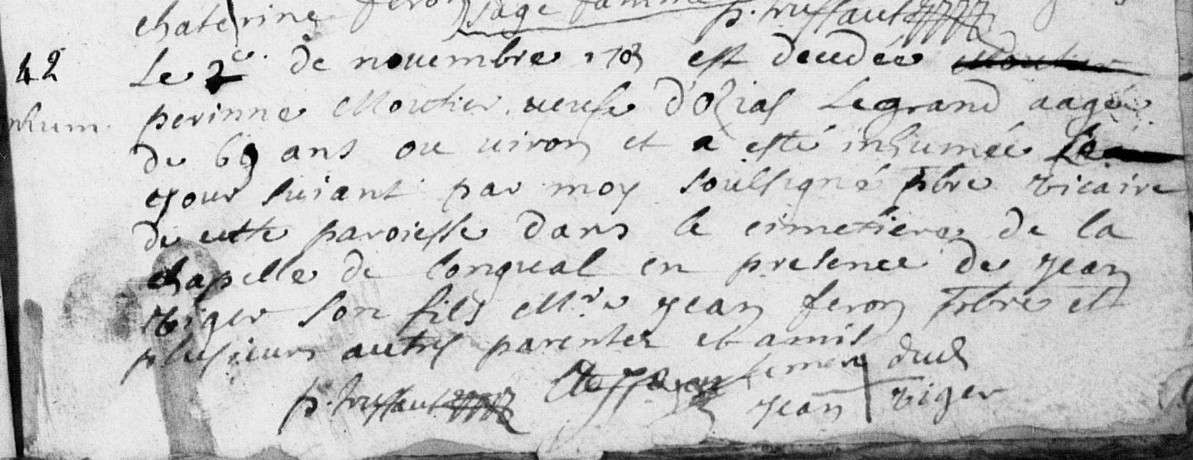 chaterine feron sage femme p. truffaut
42 Le 2e de novembre 178 est decedée
inhum. perinne Moutier veufe d'Ozias Legrand aagée
de 69 ans ou viron et a esté inhumée le
jour suivant par moy soussigné pbre vicaire
de cette paroiesse dans le cimetiere de la
chapelle de Longueal en presence de jean
viger son fils Mre jean feron pbre et
plusieurs autres parentez et amis
p. truffaut
jean viger